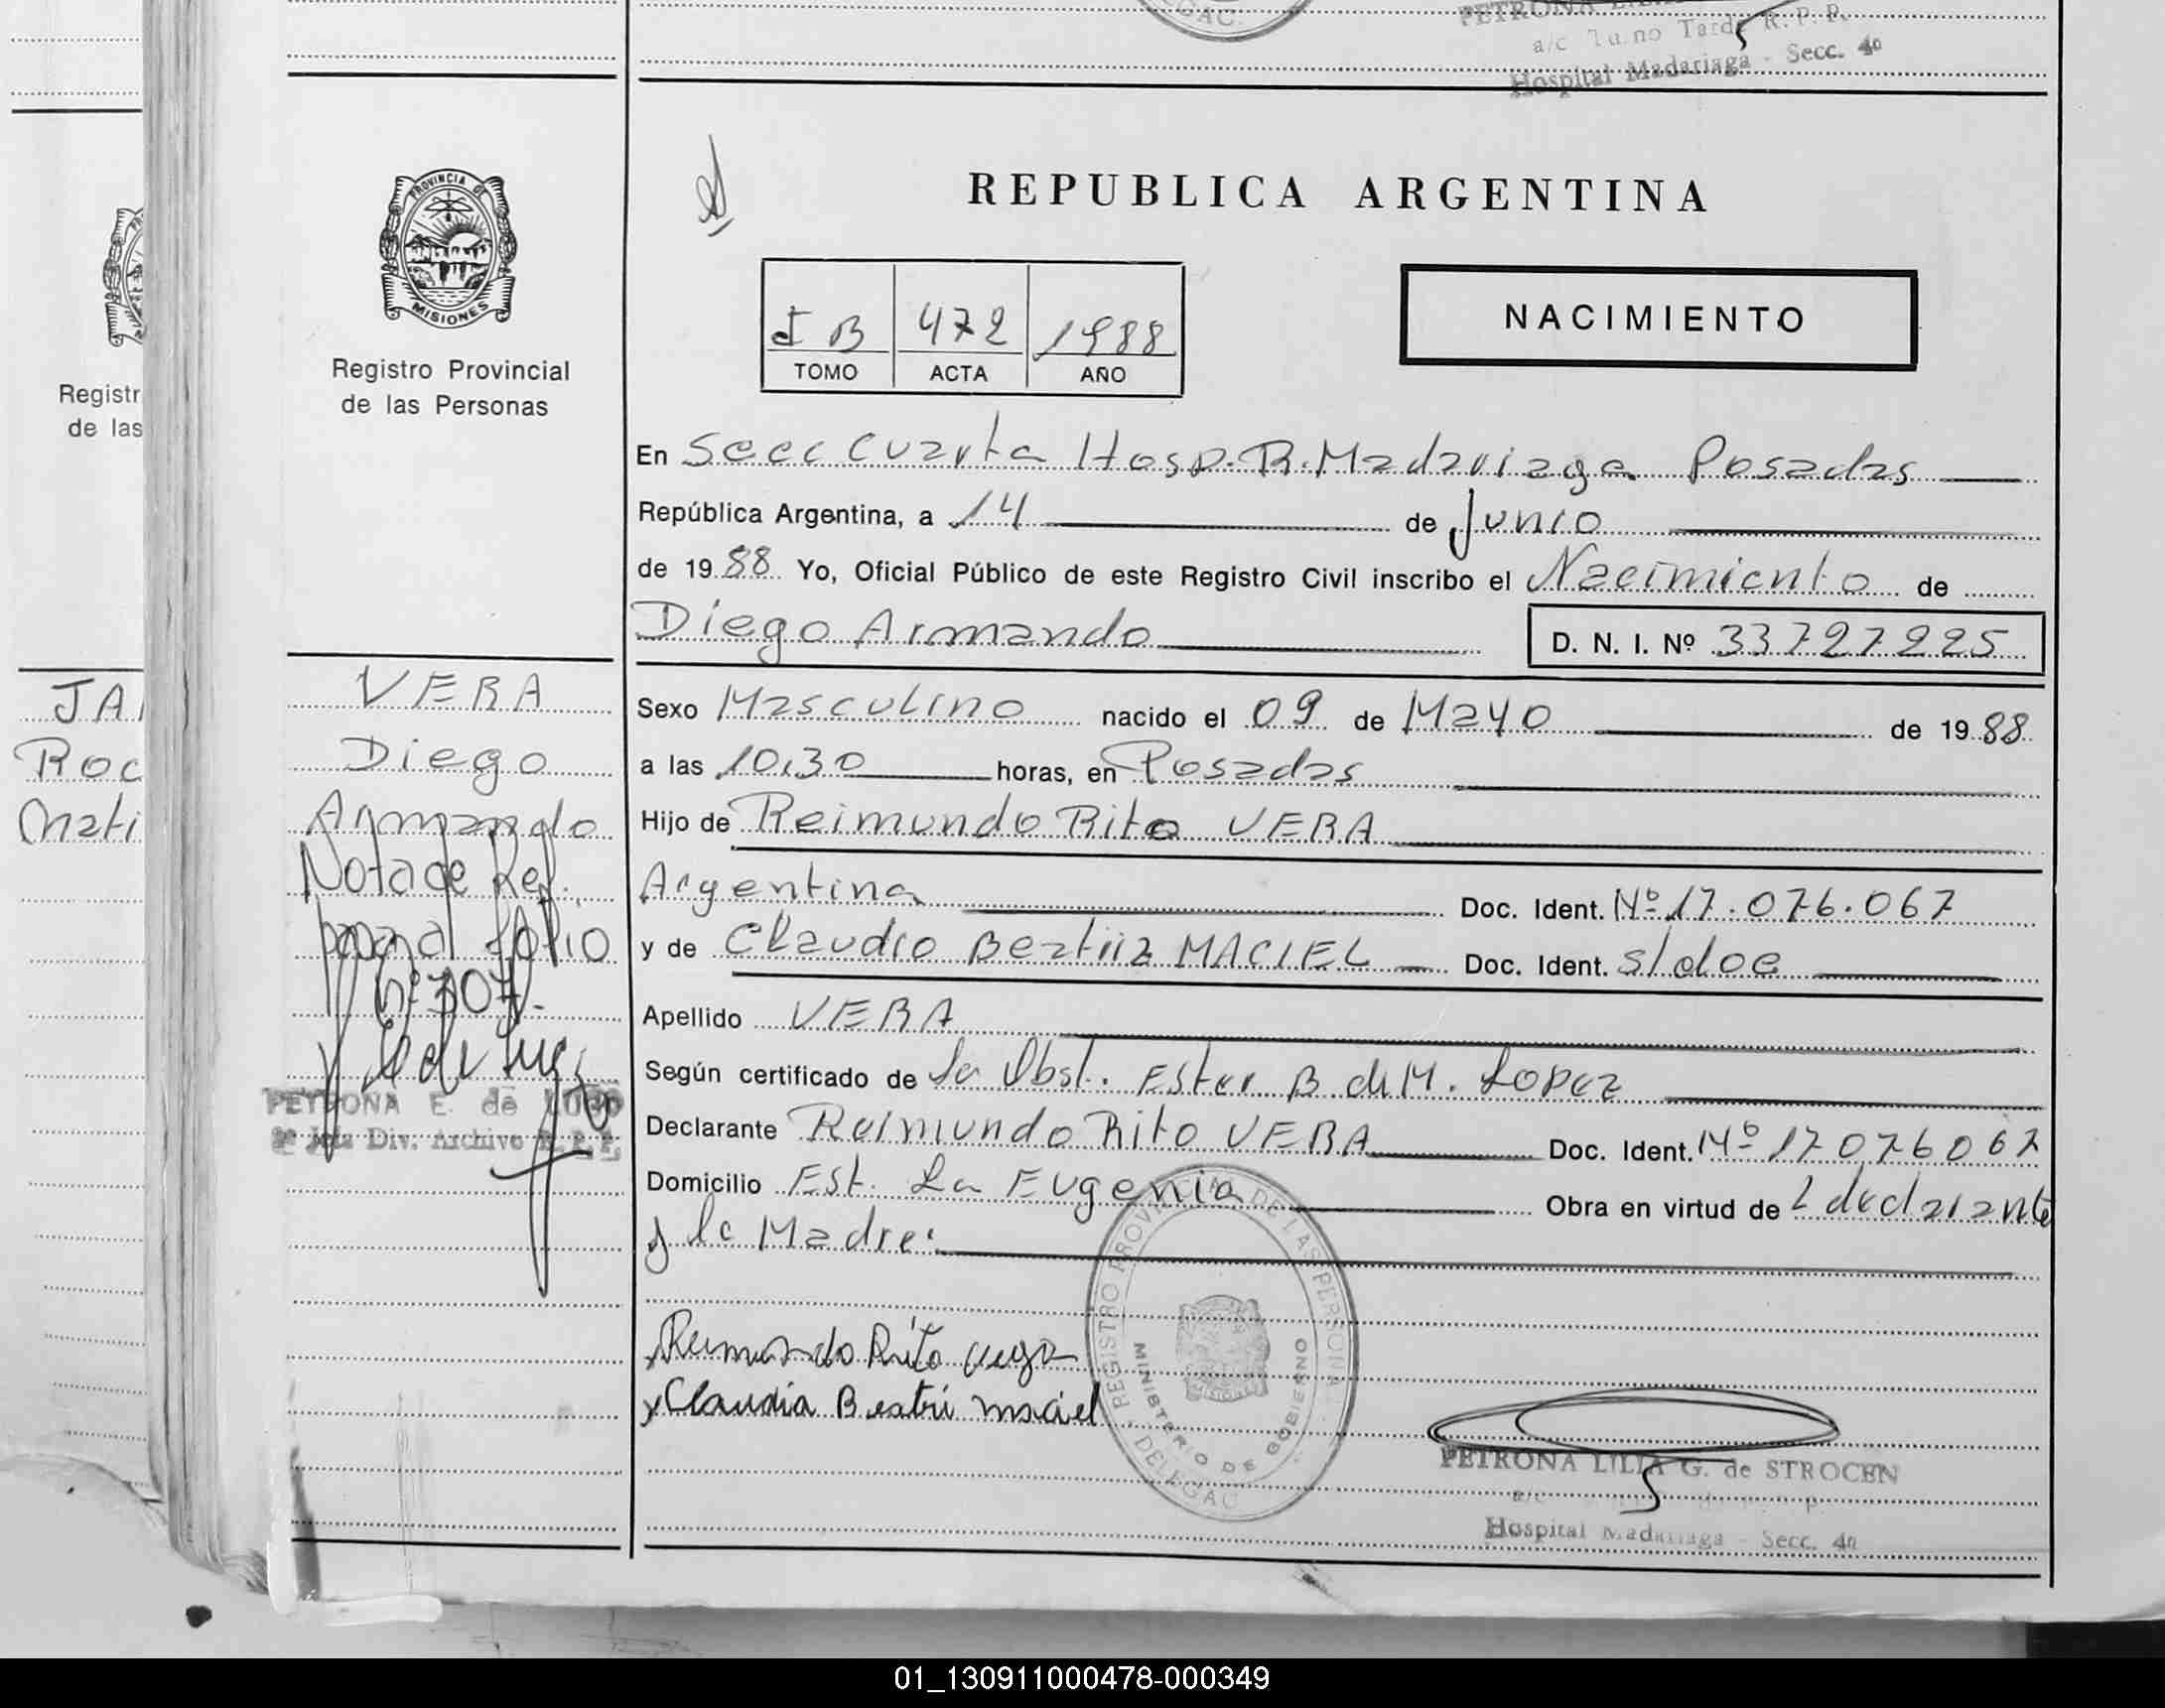 PETRONA
a/c Turno Tarde R. P. P.
Hospital Madariaga - Secc. 4a
PROVINCIA DE
MISIONES
Registro Provincial
de las Personas
Registr
de las
REPUBLICA ARGENTINA
I B 472 1988
TOMO ACTA AÑO
NACIMIENTO
En Secc Cuarta Hosp. R. Madariaga Posadas
República Argentina, a 14 de Junio
de 1988 Yo, Oficial Público de este Registro Civil inscribo el Nacimiento de
Diego Armando
D. N. I. Nº 33727225
Sexo Masculino nacido el 09 de Mayo de 1988
a las 10,30 horas, en Posadas
Hijo de Reimundo Rito VERA
Argentina Doc. Ident. Nº 17.076.067
y de Claudio Beatriz MACIEL Doc. Ident. s/doc
Apellido VERA
Según certificado de la Obst. Ester B de M. Lopez
Declarante Reimundo Rito VERA Doc. Ident. Nº 17076067
Domicilio Est. La Eugenia Obra en virtud de L declarante
y la Madre.
Reimundo Rito
Claudia Beatri maciel
REGISTRO PROVINCIAL DE LAS PERSONAS
MINISTERIO DE GOBIERNO
DELEGAC
PETRONA LILIA G. de STROCEN
a/c
Hospital Madariaga - Secc. 4a
VERA
Diego
Armando
Nota de Ref.
al folio
Nº 307.
PETRONA E. de LUGO
2º Jefa Div. Archivo R. P. P.
JA
Roc
Mati
01_130911000478-000349